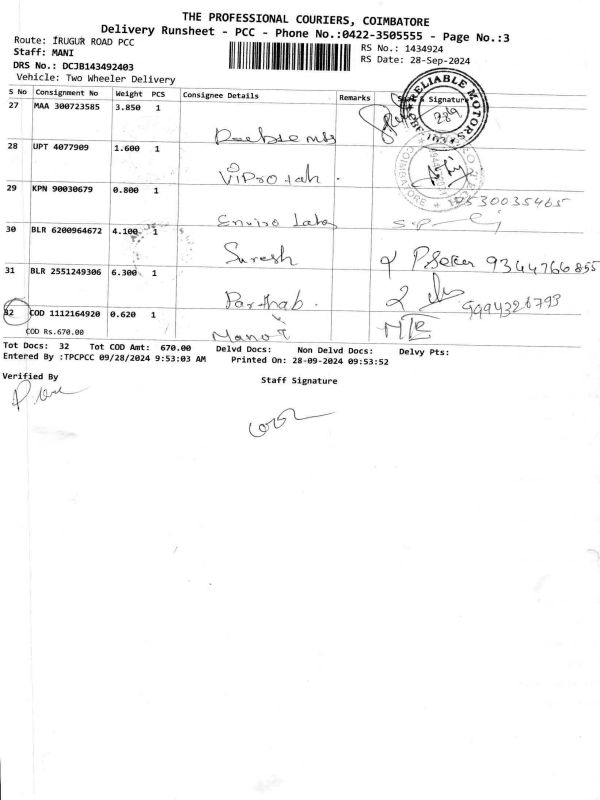 THE PROFESSIONAL COURIERS, COIMBATORE
Delivery Runsheet - PCC - Phone No.:0422-3505555 - Page No.:3
Route: IRUGUR ROAD PCC
RS No.: 1434924
Staff: MANI
RS Date: 28-Sep-2024
DRS No.: DCJB143492403
Vehicle: Two Wheeler Delivery
S No Consignment No Weight PCS Consignee Details Remarks & Signature
27 MAA 300723585 3.850 1
RELIABLE MOTORS
28/9
28 UPT 4077909 1.600 1 Viprotah.
COIMBATORE
29 KPN 90030679 0.800 1 Enviro Labs
30 BLR 6200964672 4.100 1 Suresh P.Seker 9344766855
31 BLR 2551249306 6.300 1 Parthab. 9994326793
32 COD 1112164920 0.620 1 Manot
COD Rs.670.00
Tot Docs: 32 Tot COD Amt: 670.00 Delvd Docs: Non Delvd Docs: Delvy Pts:
Entered By :TPCPCC 09/28/2024 9:53:03 AM Printed On: 28-09-2024 09:53:52
Verified By
Staff Signature